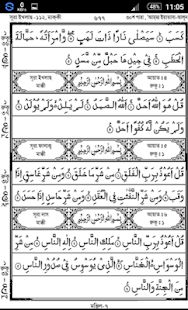 11:05
সূরা ইখলাস -১১২, মাক্কী
৬৭৭
كَسَبَ ۝ سَيَصْلَىٰ نَارًا ذَاتَ لَهَبٍ ۝ وَامْرَأَتُهُ حَمَّالَةَ
الْحَطَبِ ۝ فِي جِيدِهَا حَبْلٌ مِّن مَّسَدٍ ۝
সূরা ইখলাস
মাক্কী
بِسْمِ اللَّهِ الرَّحْمَٰنِ الرَّحِيمِ
قُلْ هُوَ اللَّهُ أَحَدٌ ۝ اللَّهُ الصَّمَدُ ۝ لَمْ يَلِدْ وَلَمْ يُولَدْ ۝
وَلَمْ يَكُن لَّهُ كُفُوًا أَحَدٌ ۝
সূরা ফালাক্ব
মাক্কী
بِسْمِ اللَّهِ الرَّحْمَٰنِ الرَّحِيمِ
قُلْ أَعُوذُ بِرَبِّ الْفَلَقِ ۝ مِن شَرِّ مَا خَلَقَ ۝ وَمِن شَرِّ غَاسِقٍ إِذَا
وَقَبَ ۝ وَمِن شَرِّ النَّفَّاثَاتِ فِي الْعُقَدِ ۝ وَمِن شَرِّ حَاسِدٍ إِذَا حَسَدَ ۝
সূরা নাস
মাক্কী
بِسْمِ اللَّهِ الرَّحْمَٰنِ الرَّحِيمِ
قُلْ أَعُوذُ بِرَبِّ النَّاسِ ۝ مَلِكِ النَّاسِ ۝ إِلَٰهِ النَّاسِ ۝ مِن شَرِّ
الْوَسْوَاسِ الْخَنَّاسِ ۝ الَّذِي يُوَسْوِسُ فِي صُدُورِ النَّاسِ ۝
مِنَ الْجِنَّةِ وَالنَّاسِ ۝
মঞ্জিল-৭